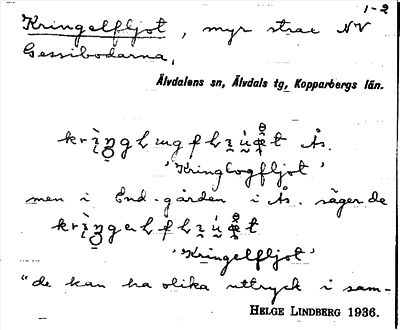 1-2
Kringelfljot, myr strax NV
Gessibodarna,
Älvdalens sn, Älvdals tg, Kopparbergs län.
Ås.
'Kringlogfljot'
men i End-gården i Ås. säger de
'Kringelfljot'
"de kan ha olika uttryck i sam-
HELGE LINDBERG 1936.